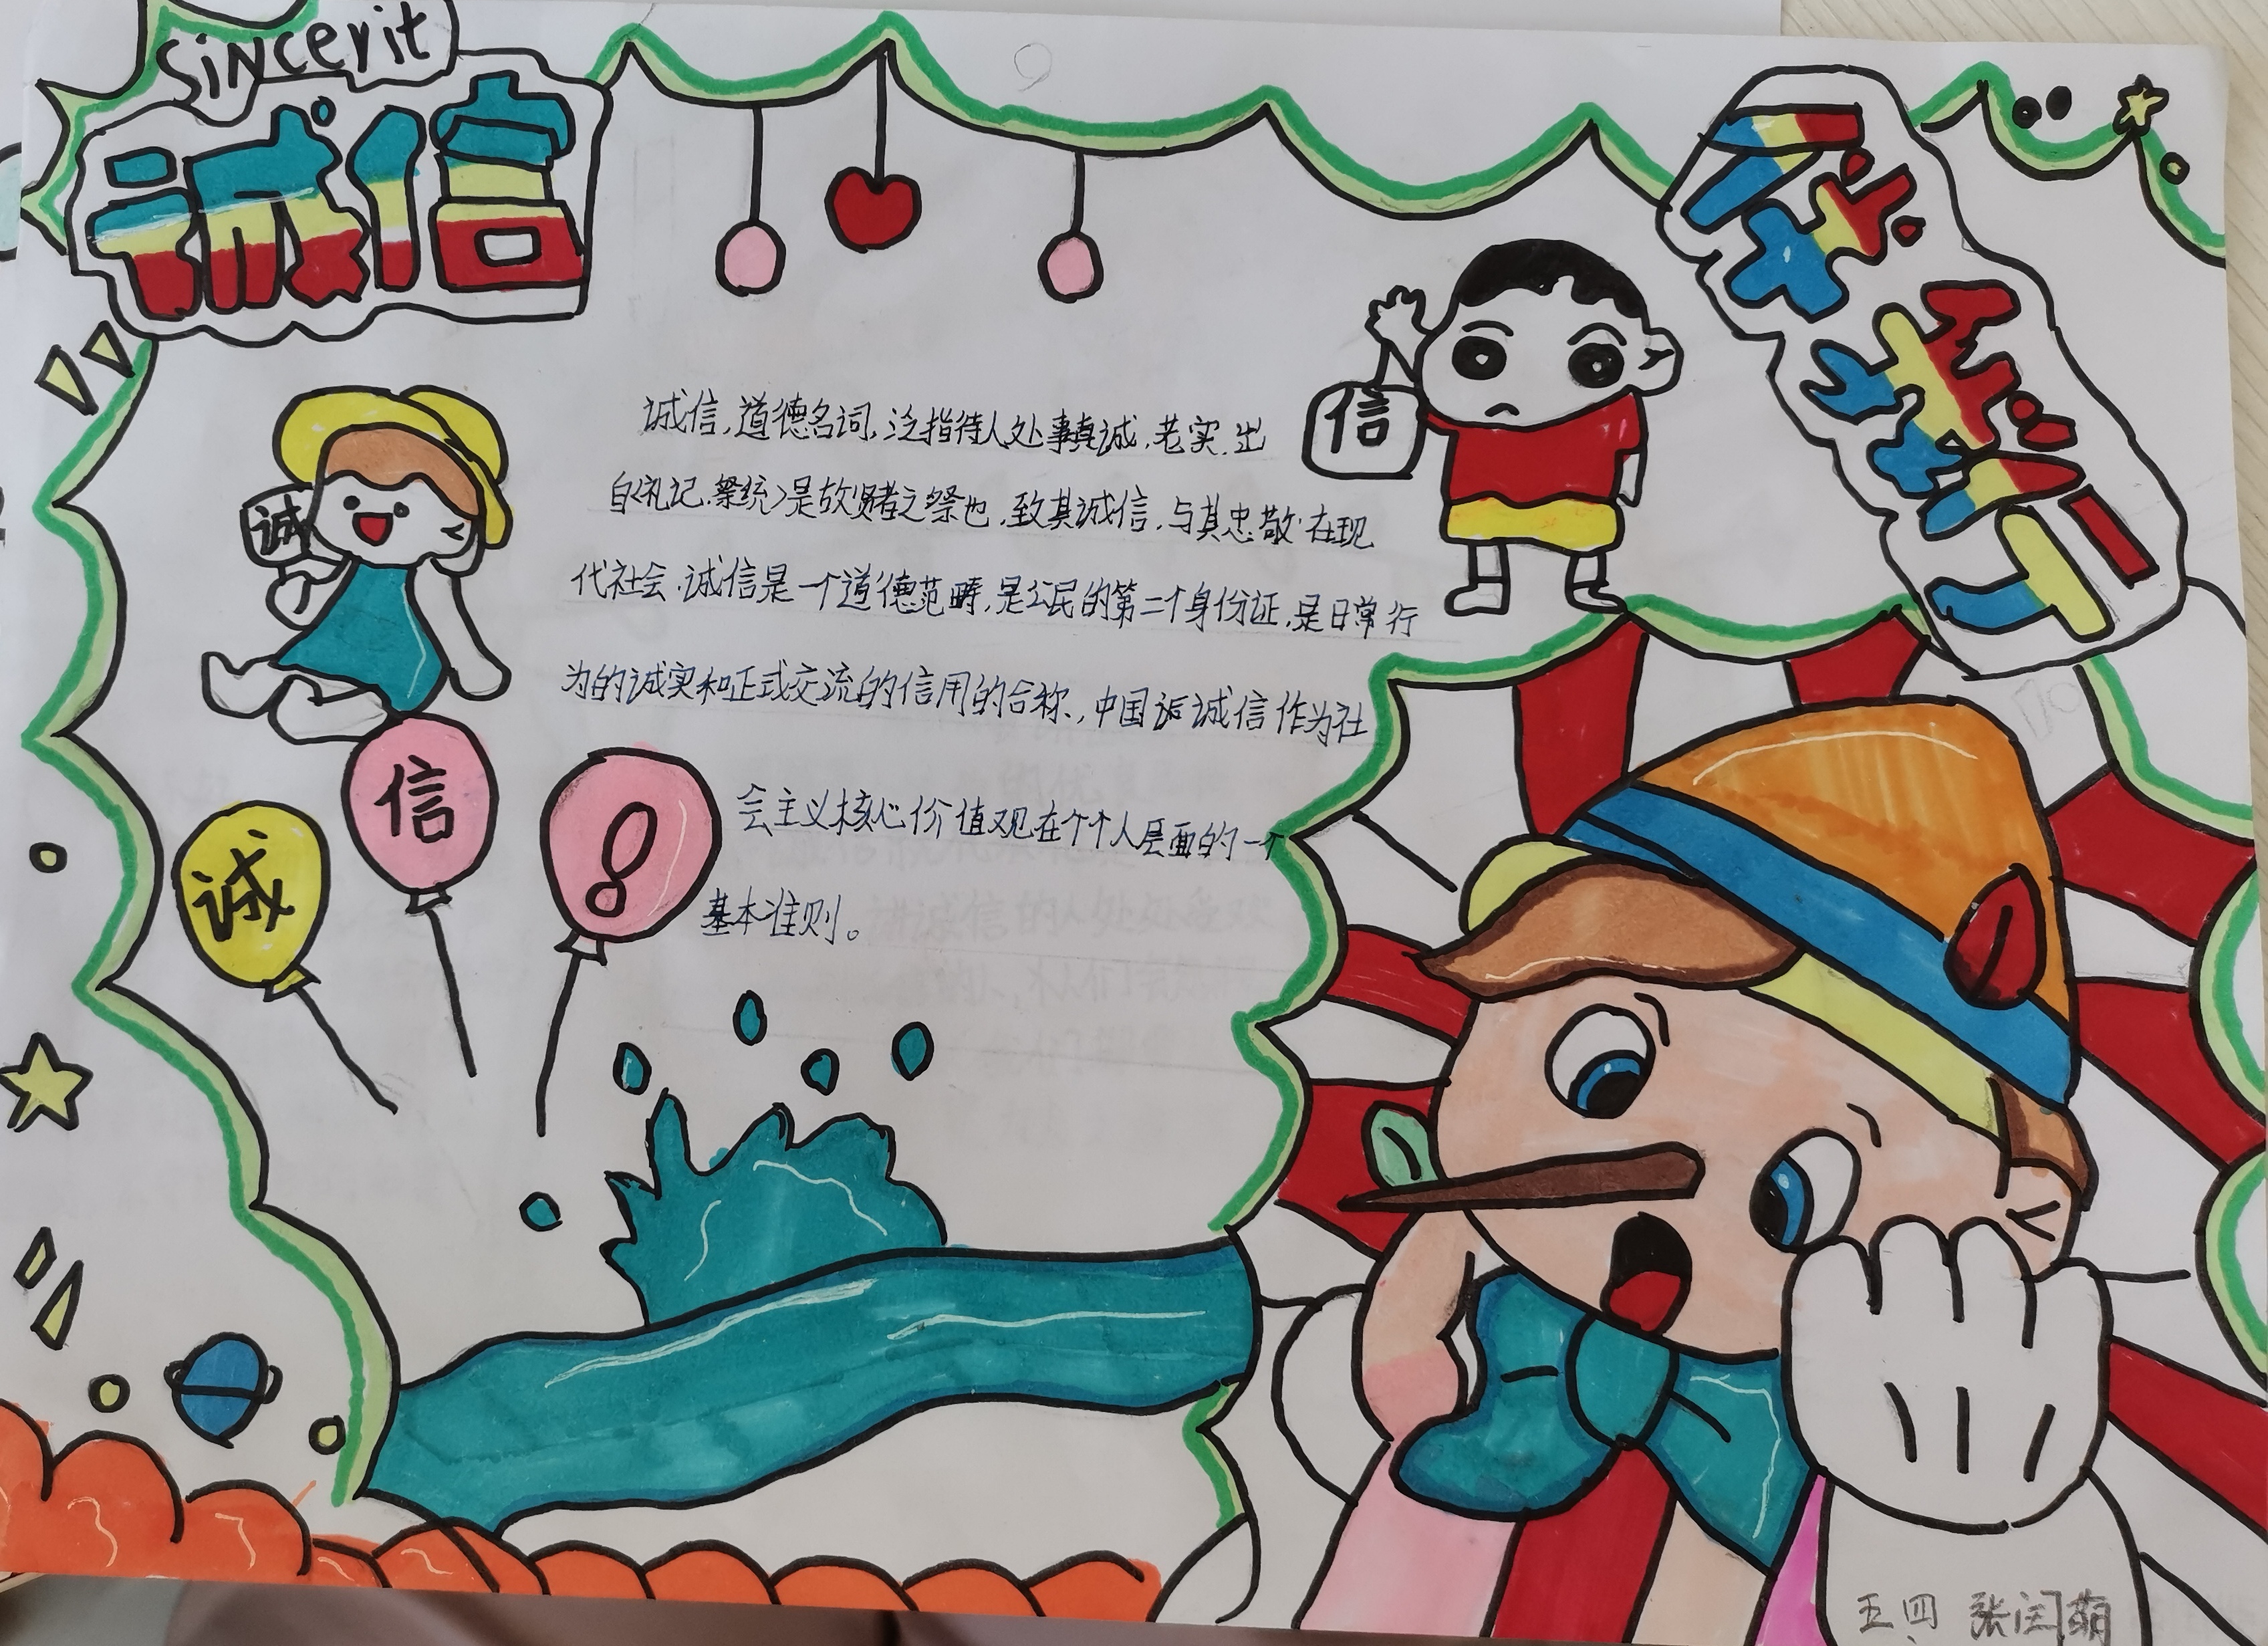 Sincerit
诚信
伴我行
信
诚信,道德名词,泛指待人处事真诚,老实,出
诚
自<礼记.祭统>是故贤者之祭也,致其诚信,与其忠敬.在现
代社会.诚信是一个道德范畴,是公民的第二个身份证,是日常行
为的诚实和正式交流的信用的合称,中国诚信作为社
会主义核心价值观在个个人层面的一个
基本准则。
诚
信
!
五四 张闰萌